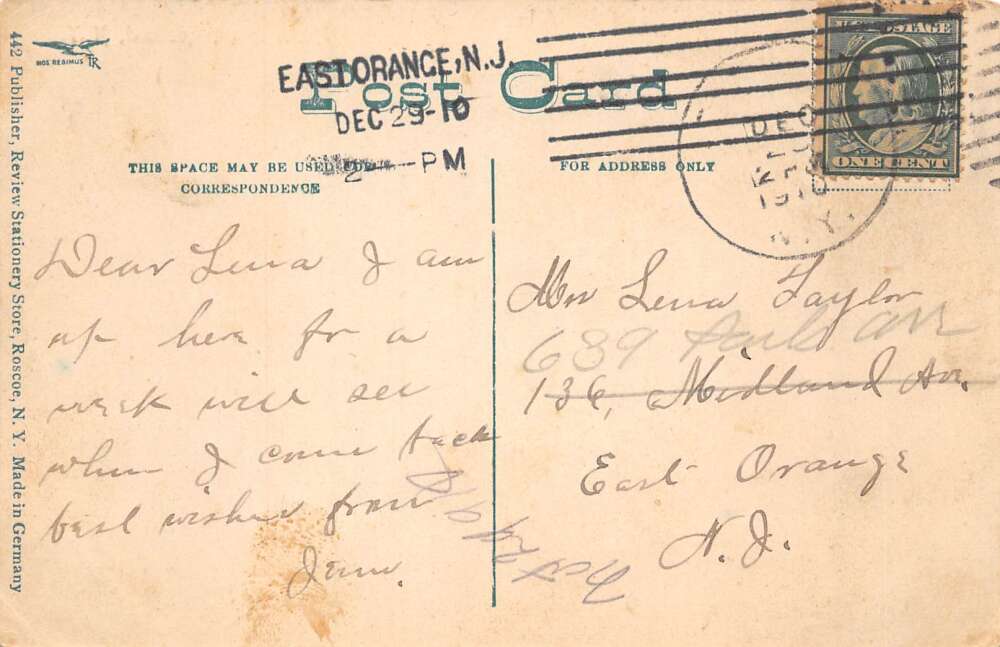 442 Publisher, Review Stationery Store, Roscoe, N. Y. Made in Germany
NOS REGIMUS TR
Post Card
EAST ORANGE, N.J.
DEC 29-10
2 — PM
THIS SPACE MAY BE USED FOR
CORRESPONDENCE
FOR ADDRESS ONLY
U.S. POSTAGE
ONE CENT
DEC
1910
N.Y.
Dear Lena I am
up here for a
week will see
when I come back
best wishes from
Mrs Lena Taylor
639 Park Ave
136, Midland Ave.
East Orange
N. J.